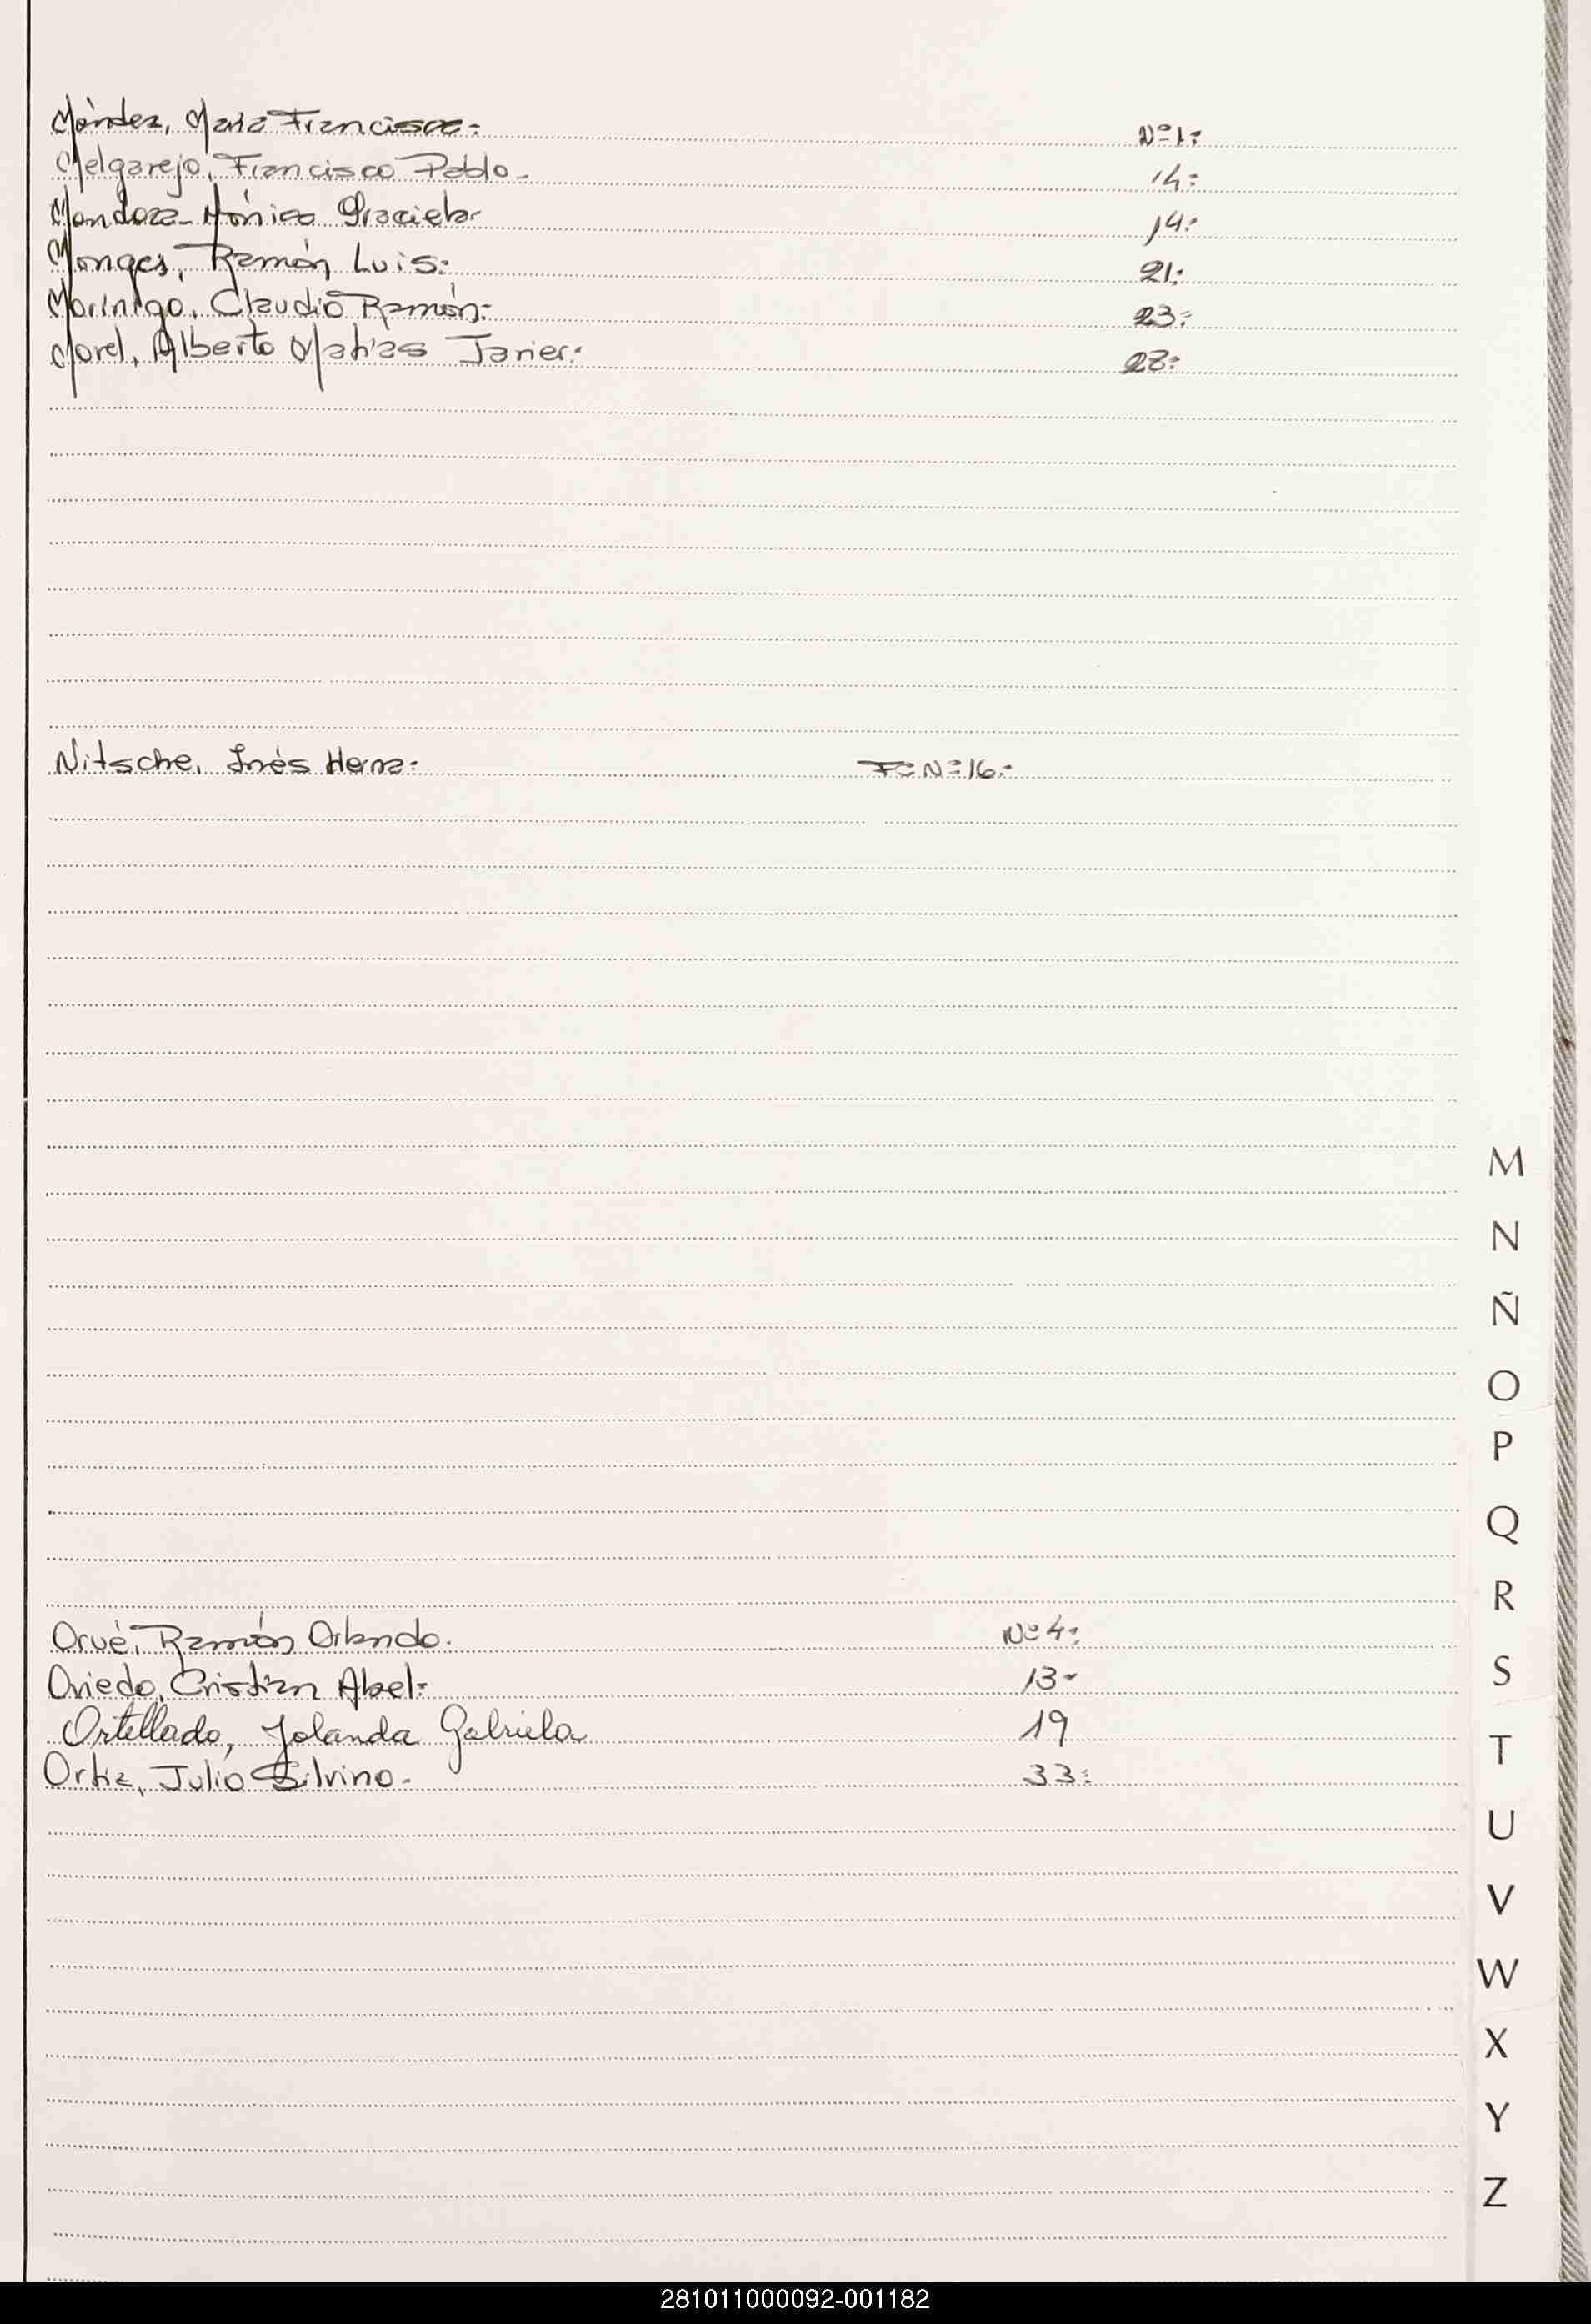 Méndez, María Francisca:- Nº 1:-
Melgarejo, Francisco Pablo.- 14:-
Mendoza Mónica Graciela.- 14:-
Monges, Ramón Luis:- 21:-
Morínigo, Claudio Ramón:- 23:-
Morel, Alberto Matías Javier:- 28:-
Nitsche, Inés Herna:- Fº Nº 16.-
Orué, Ramón Orlando. Nº 4:-
Oviedo, Cristian Abel:- 13.-
Ortellado, Yolanda Gabriela 19
Ortiz, Julio Silvino.- 33:-
M
N
Ñ
O
P
Q
R
S
T
U
V
W
X
Y
Z
281011000092-001182